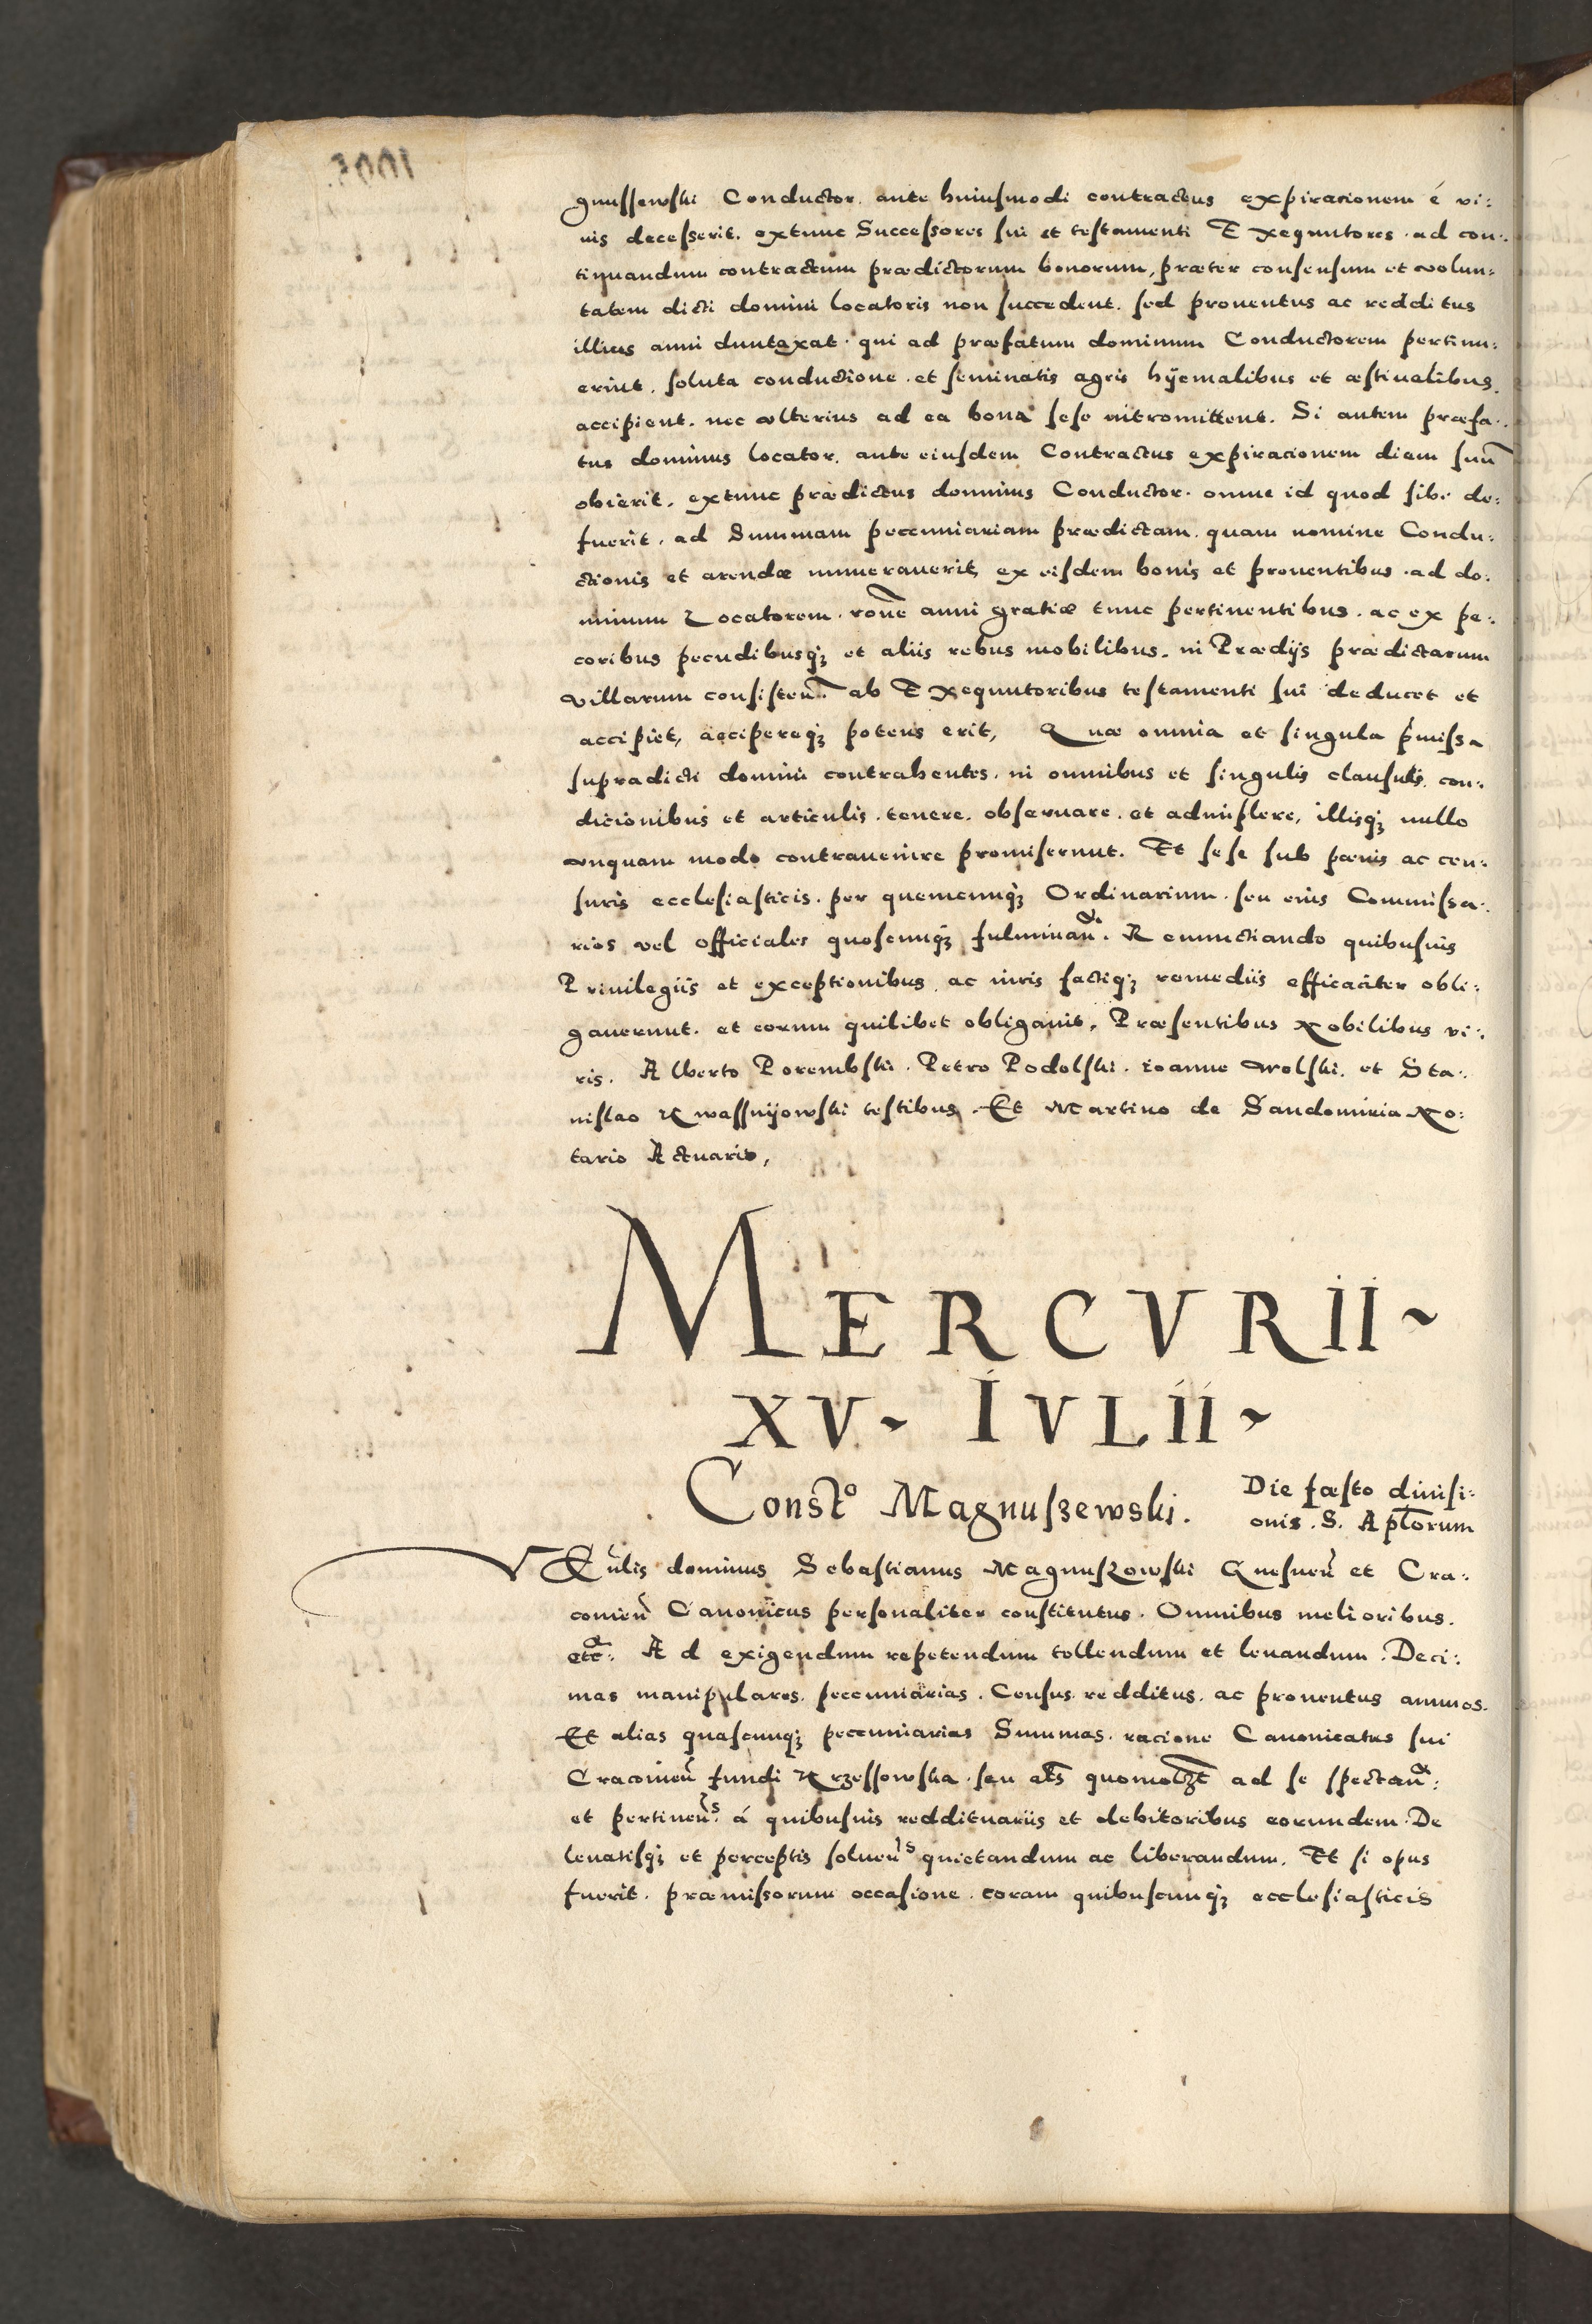 gnussewski Conductor. ante huiusmodi contractus expirationem é vi:
uis decesserit. extunc Successores sui et testamenti Exequutores. ad con:
tinuandum contractum prædictorum bonorum, præter consensum et volun:
tatem dicti domini locatoris non succedent. sed prouentus ac redditus
illius anni duntaxat. qui ad præfatum dominum Conductorem pertinu:
erint. soluta conductione. et seminatis agris hÿemalibus et æstiualibus.
accipient. nec vlterius ad ea bona sese intromittent. Si autem præfa:
tus dominus locator. ante eiusdem Contractus expiracionem diem suū
obierit. extunc prædictus dominus Conductor. omne id quod sibi de:
fuerit. ad Summam pecuniariam prædictam. quam nomine Condu:
ctionis et arendæ numerauerit, ex eisdem bonis et prouentibus. ad do:
minum Locatorem. rōne anni gratiæ tunc pertinentibus. ac ex pe:
coribus pecudibusqꝫ et aliis rebus mobilibus. in Prædijs prædictarum
villarum consisteñ. ab Exequutoribus testamenti sui deducet et
accipiet, accipereqꝫ potens erit, Quæ omnia et singula p̄missa
supradicti domini contrahentes. in omnibus et singulis clausulis. con:
dicionibus et articulis. tenere. obseruare. et adimplere, illisqꝫ nullo
vnquam modo contrauenire promiserunt. Et sese sub pœnis ac cen:
suris ecclesiasticis. per quemcunqꝫ Ordinarium. seu eius Commissa:
rios vel officiales quoscunqꝫ fulminañ. Renunctiando quibusuis
Priuilegiis et exceptionibus. ac iuris factiqꝫ remediis efficaciter obli:
gauerunt. et eorum quilibet obligauit. Præsentibus Nobilibus vi:
ris. Alberto Porembski. Petro Podolski. Ioanne Wolski. et Sta:
nislao Kwassnijowski testibus. Et Martino de Sandomiria No:
tario Actuario,
MERCVRII ~
XV ~ IVLII ~
Const.º Magnuszewski. Die fæsto diuisi:
onis. S. Apl̄orum
dominus Sebastianus Magnuszowski Gnesneñ et Cra:
couieñ Canonicus personaliter constitutus. Omnibus melioribus.
etc: Ad exigendum repetendum tollendum et leuandum. Deci:
mas manipulares. pecuniarias. Census. redditus. ac prouentus annuos.
Et alias quascunqꝫ pecuniarias Summas. racione Canonicatus sui
Cracouieñ fundi Krzessowska. seu al̄s quomol̄ꝫt ad se spectañ:
et pertineñs. á quibusuis reddituariis et debitoribus eorundem. De
leuatisqꝫ et perceptis solueñs quietandum ac liberandum. Et si opus
fuerit. præmissorum occasione. coram quibuscunqꝫ ecclesiasticis